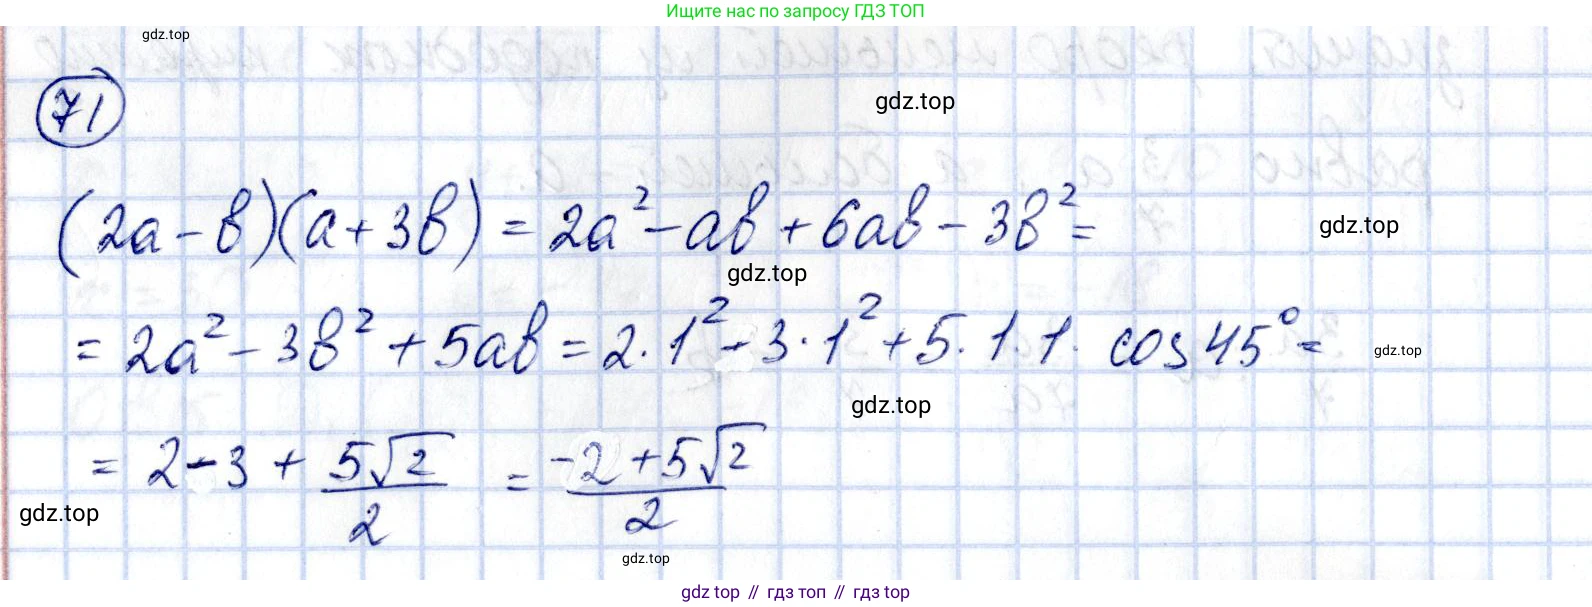 Ищите нас по запросу ГДЗ ТОП
gdz.top
71
gdz.top
(2a - b)(a + 3b) = 2a² - ab + 6ab - 3b² =
gdz.top
gdz.top
= 2a² - 3b² + 5ab = 2 · 1² - 3 · 1² + 5 · 1 · 1 · cos 45° =
gdz.top
gdz.top
= 2 - 3 + 5√2/2 = (-2 + 5√2)/2
gdz.top
gdz.top
gdz top // гдз топ // гдз top